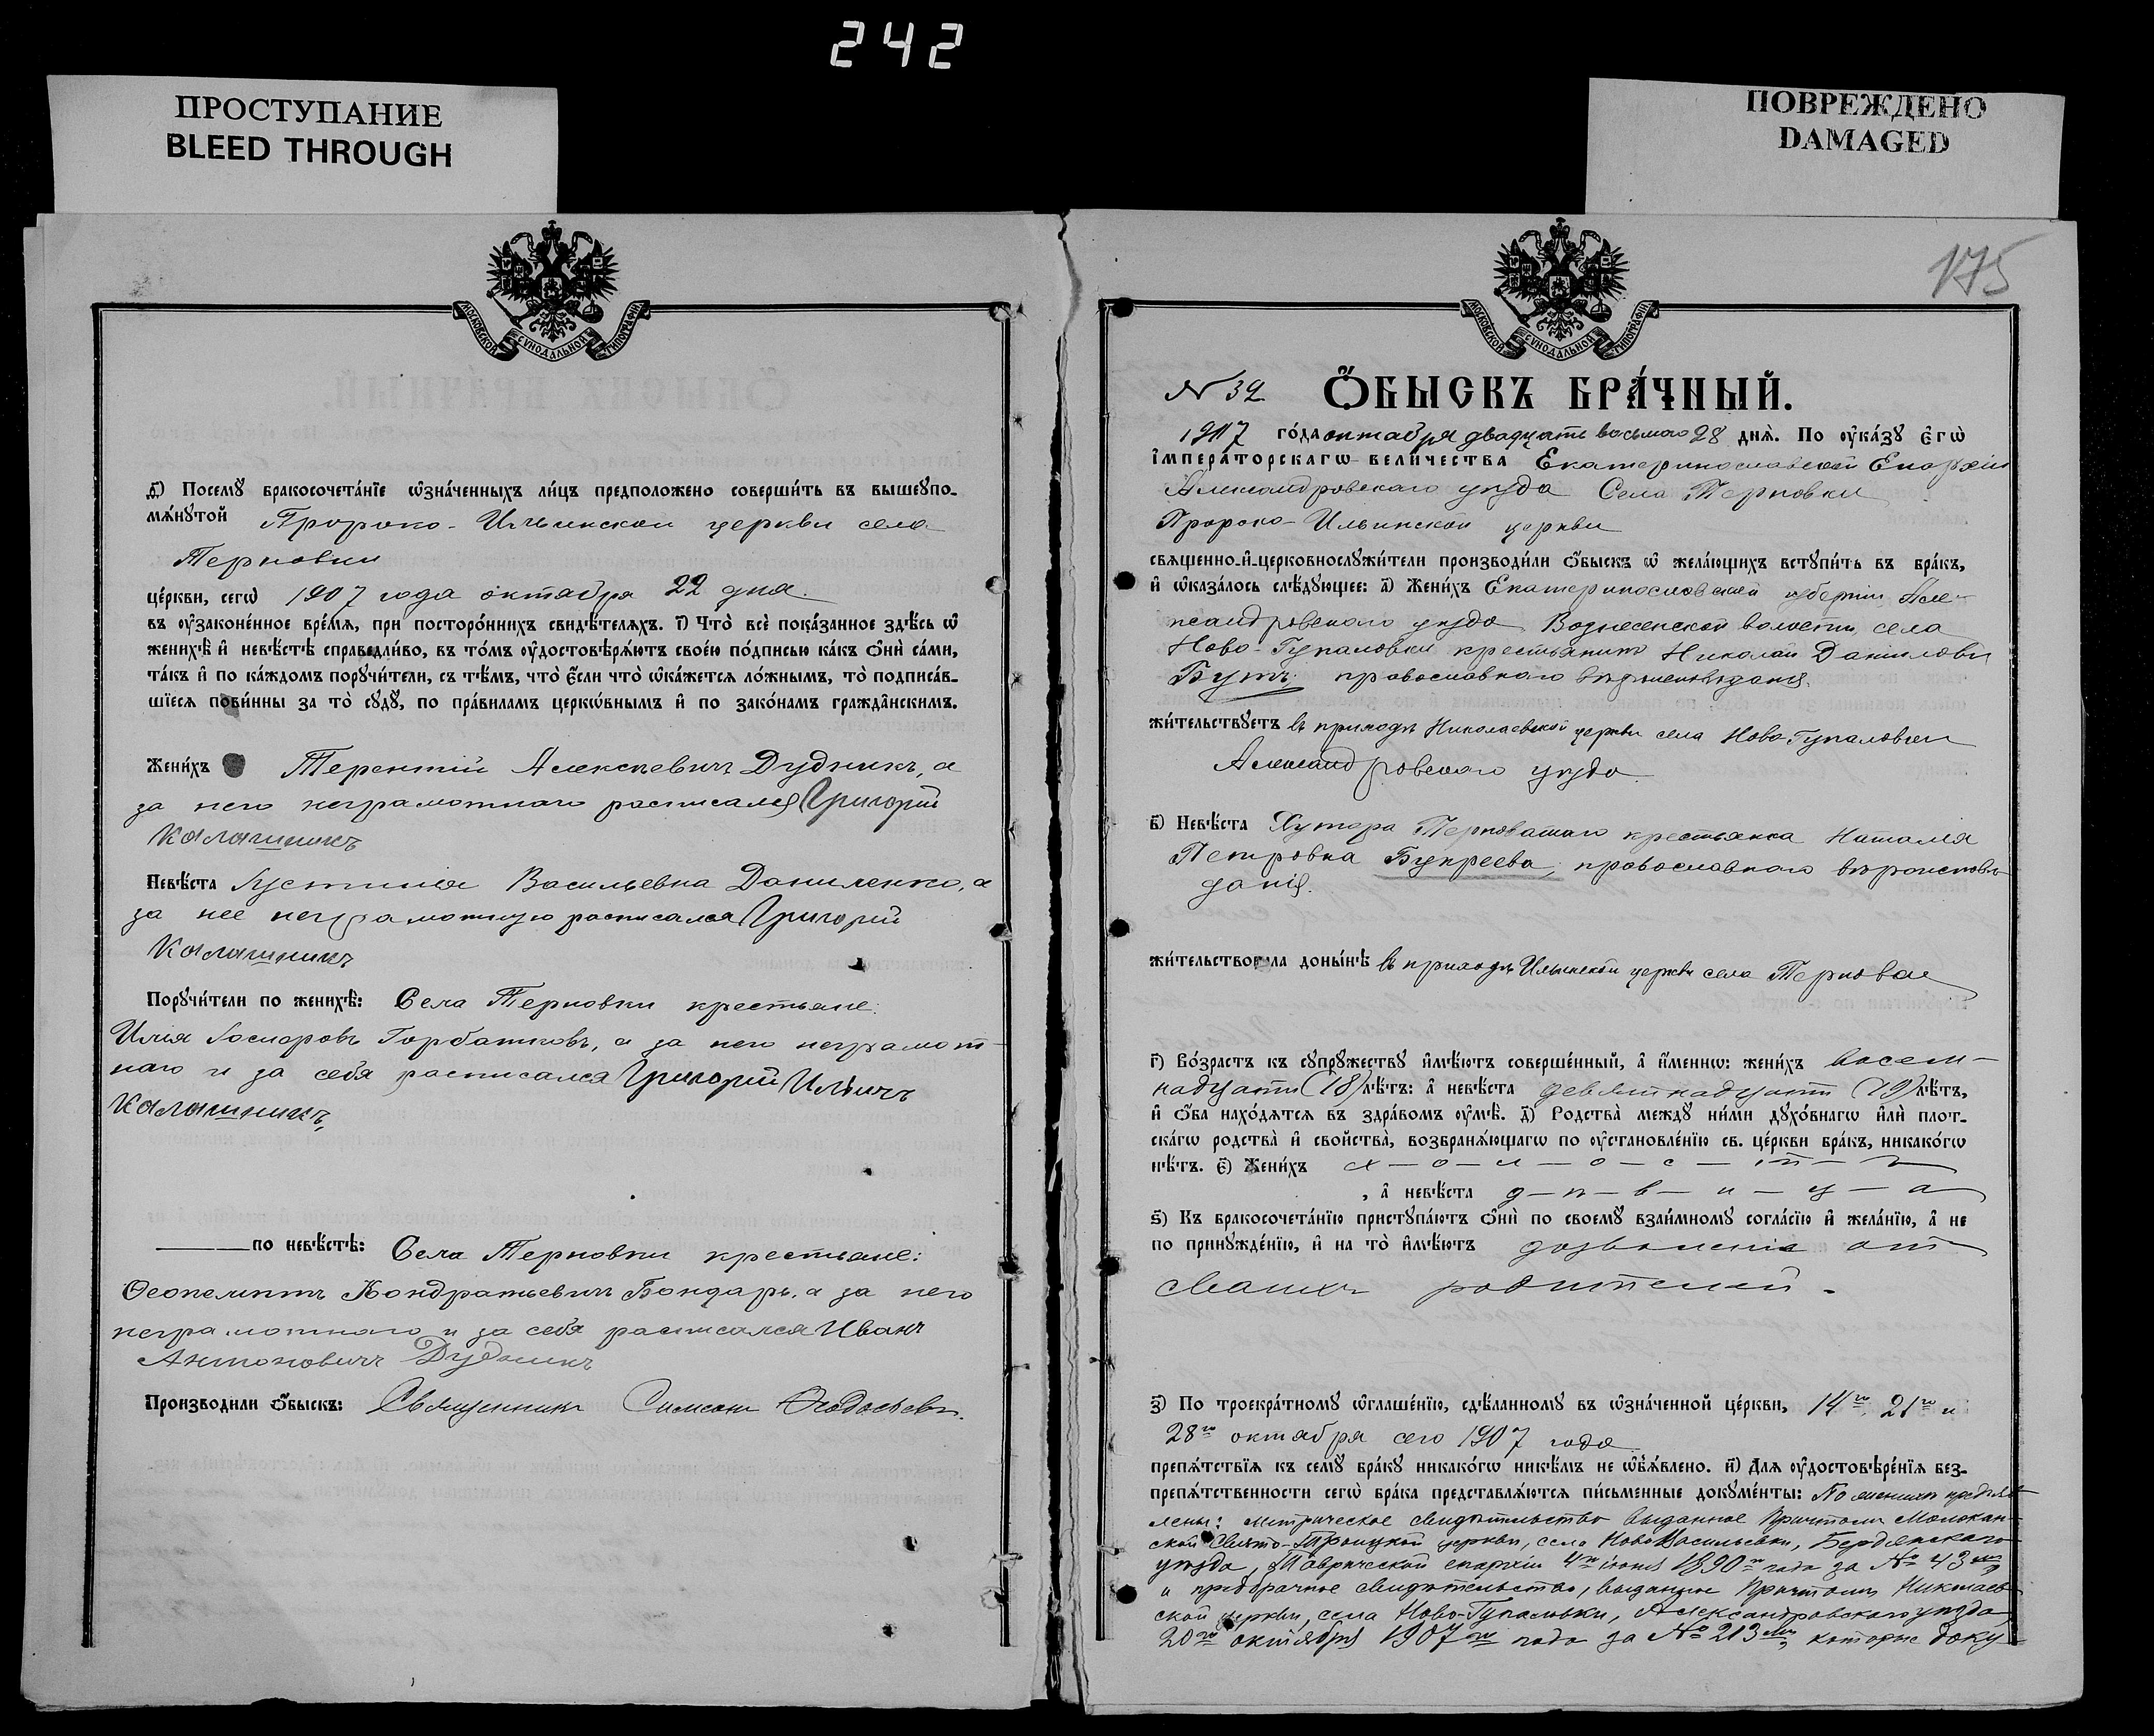 242
ПРОСТУПАНИЕ
BLEED THROUGH
ПОВРЕЖДЕНО
DAMAGED
МОСКОВСКОЙ СѴНОДАЛЬНОЙ ТИПОГРАФІИ
д҃) Посемꙋ̀ бракосочета́нїе ѡ҆зна́ченныхъ ли́цъ предположено соверши́ть въ вышеꙋпо-
мѧ́нꙋтой Пророко-Ильинской церкви села
Терновки
це́ркви, сегѡ̀ 1907 года октября 22 дня.
въ ᲂу҆законе́нное вре́мѧ, при посторо́ннихъ свидѣ́телѧхъ. і҃) Что̀ всѐ пока́занное здѣ́сь ѡ҆
женихѣ̀ и҆ невѣ́стѣ справедли́во, въ то́мъ ᲂу҆достовѣрѧ́ютъ свое́ю по́дписью ка́къ ѻ҆нѝ са́ми,
та́къ и҆ по ка́ждомъ порꙋчи́тели, съ тѣ́мъ, что̀ є҆́сли что̀ ѡ҆ка́жетсѧ ло́жнымъ, то̀ подписа́в-
шїесѧ пови́нны за то̀ сꙋдꙋ̀, по пра́виламъ церко́внымъ и҆ по зако́намъ гражда́нскимъ.
Жени́хъ Терентій Алексѣевичъ Дудникъ, а
за него неграмотнаго расписался Григорій
Калашникъ
Невѣ́ста Іустинія Васильевна Даниленко, а
за нее неграмотную расписался Григорій
Калашникъ
Порꙋчи́тели по женихѣ̀: Села Терновки крестьяне:
Илія Іосифовъ Горбатковъ, а за него неграмот-
наго и за себя расписался Григорий Ильичъ
Калашникъ,
по невѣ́стѣ: Села Терновки крестьяне:
Ѳеопемптъ Кондратьевичъ Бондарь, а за него
неграмотнаго и за себя расписался Иванъ
Антоновичъ Дудникъ
Производили ѻ҆́быскъ: Священникъ Симеонъ Ѳеодосьевъ.
175
МОСКОВСКОЙ СѴНОДАЛЬНОЙ ТИПОГРАФІИ
№ 32 Ѻ҆́БЫСКЪ БРА́ЧНЫЙ.
1907 го́да октября двадцать восьмаго 28 днѧ̀. По ᲂу҆ка́зꙋ є҆гѡ̀
і҆мпера́торскагѡ вели́чества Екатеринославской Епархіи
Александровскаго уѣзда Села Терновки
Пророко-Ильинской церкви
свѧщенно-и҆-церковнослꙋжи́тели производи́ли ѻ҆́быскъ ѡ҆ жела́ющихъ встꙋпи́ть въ бра́къ,
и҆ ѡ҆каза́лось слѣ́дꙋющее: а҃) Жени́хъ Екатеринославской губерніи Але-
ксандровскаго уѣзда Вознесенской волости, села
Ново-Гупаловки крестьянинъ Николай Даниловъ
Бутъ, православнаго вѣроисповѣданія.
жи́тельствꙋетъ въ приходѣ Николаевской церкви села Ново-Гупаловки
Александровскаго уѣзда
в҃) Невѣ́ста Хутора Терноватаго крестьянка Наталія
Петровна Букреева, православнаго вѣроисповѣ-
данія.
жи́тельствовала доны́нѣ въ приходѣ Ильинской церкви села Терновки
г҃) Во́зрастъ къ сꙋпрꙋ́жествꙋ и҆мѣ́ютъ соверше́нный, а҆ и҆́меннѡ: жени́хъ восем-
надцати (18) лѣ́тъ: а҆ невѣ́ста девятнадцати (19) лѣ́тъ,
и҆ ѻ҆́ба нахо́дѧтсѧ въ здра́вомъ ᲂу҆мѣ̀. д҃) Родства̀ междꙋ̀ ни́ми дꙋхо́внагѡ и҆лѝ плот-
ска́гѡ родства̀ и҆ свойства̀, возбранѧ́ющагѡ по ᲂу҆становле́нїю св. це́ркви бра́къ, никако́гѡ
нѣ́тъ. є҃) Жени́хъ х-о-л-о-с-т-ъ
, а҆ невѣ́ста д-ѣ-в-и-ц-а
ѕ҃) Къ бракосочета́нїю пристꙋпа́ютъ ѻ҆нѝ по своемꙋ̀ взаи́мномꙋ согла́сїю и҆ жела́нїю, а҆ не
по принꙋжде́нїю, и҆ на то̀ и҆мѣ́ютъ дозволеніе отъ
своихъ родителей.
з҃) По троекра́тномꙋ ѡ҆глаше́нїю, сдѣ́ланномꙋ въ ѡ҆зна́ченной це́ркви, 14го, 21го и
28го октября сего 1907 года
препѧ́тствїѧ къ семꙋ̀ бра́кꙋ никако́гѡ никѣ́мъ не ѡ҆б̾ѧ́влено. и҃) Длѧ ᲂу҆достовѣре́нїѧ без-
препѧ́тственности сегѡ̀ бра́ка представлѧ́ютсѧ пи́сьменные докꙋме́нты: Но женихъ представ-
лены: метрическое свидѣтельство выданное Причтомъ Молокан-
ской Свято-Троицкой церкви, села Ново Васильевки, Бердянскаго
уѣзда, Таврической епархіи 4го іюня 1890го года за № 43мъ
и предбрачное свидѣтельство, выданное Причтомъ Николаев-
ской церкви, села Ново-Гупаловки, Александровскаго уѣзда,
20го октября 1907го года за № 213мъ, которые доку-